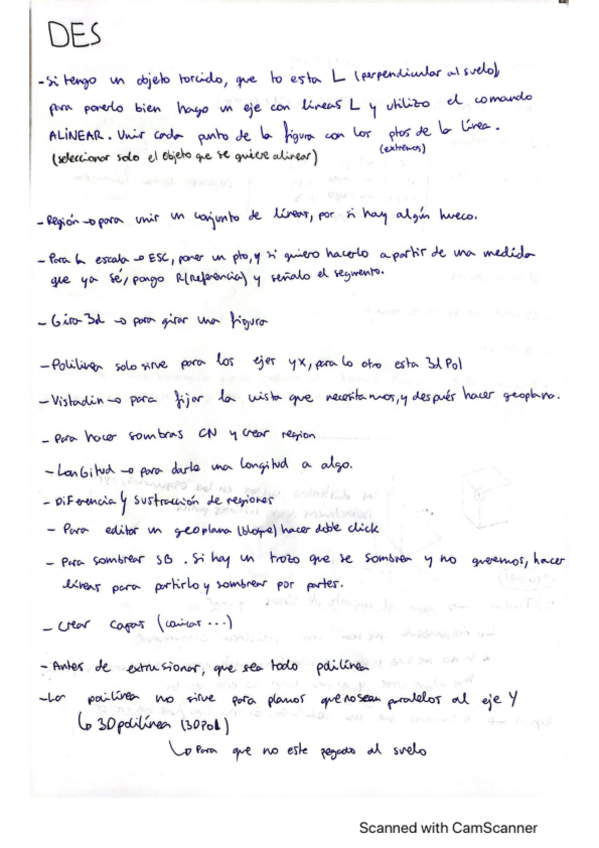 DES
- Si tengo un objeto torcido, que to esta L (perpendicular al suelo)
para ponerlo bien hago un eje con líneas L y utilizo el comando
ALINEAR. Unir cada punto de la figura con los ptos de la línea.
(seleccionar solo el objeto que se quiere alinear) (extremos)
- Región → para unir un conjunto de líneas, por si hay algún hueco.
- Para la escala → ESC, poner un pto, y si quiero hacerlo a partir de una medida
que ya sé, pongo R(referencia) y señalo el segmento.
- Gira 3d → para girar una figura
- Polilínea solo sirve para los ejes yx, para lo otro esta 3d Pol
- Vistadin → para fijar la vista que necesitamos, y después hacer geoplano.
- Para hacer sombras CN y crear region
- LonGitud → para darle una longitud a algo.
- DiFerencia y sustracción de regiones
- Para editar un geoplana (bloque) hacer doble click
- Para sombrear SB. Si hay un trozo que se sombrea y no queremos, hacer
líneas para partirlo y sombrear por partes.
- Crear capas ( ...)
- Antes de extrusionar, que sea todo polilínea
- La polilínea no sirve para planos que no sean paralelos al eje Y
↳ 3D polilínea (3DPOL)
↳ Para que no este pegado al suelo
Scanned with CamScanner